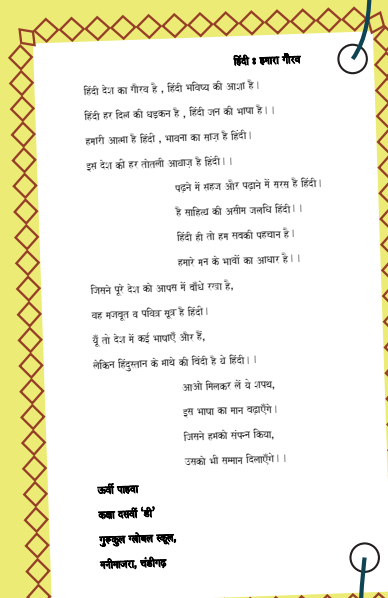 हिंदी : हमारा गौरव
हिंदी देश का गौरव है , हिंदी भविष्य की आशा है।
हिंदी हर दिल की धड़कन है , हिंदी जन की भाषा है।।
हमारी आत्मा है हिंदी , भावना का साज़ है हिंदी।
इस देश की हर तोतली आवाज़ है हिंदी।।
पढ़ने में सहज और पढ़ाने में सरस है हिंदी।
है साहित्य की असीम जलधि हिंदी।।
हिंदी ही तो हम सबकी पहचान है।
हमारे मन के भावों का आधार है।।
जिसने पूरे देश को आपस में बाँधे रखा है,
वह मजबूत व पवित्र सूत्र है हिंदी।
यूँ तो देश में कई भाषाएँ और हैं,
लेकिन हिंदुस्तान के माथे की बिंदी है ये हिंदी।।
आओ मिलकर लें ये शपथ,
इस भाषा का मान बढ़ाएँगे।
जिसने हमको संपन्न किया,
उसको भी सम्मान दिलाएँगे।।
ऊर्वी पाहवा
कक्षा दसवीं 'डी'
गुरुकुल ग्लोबल स्कूल,
मनीमाजरा, चंडीगढ़